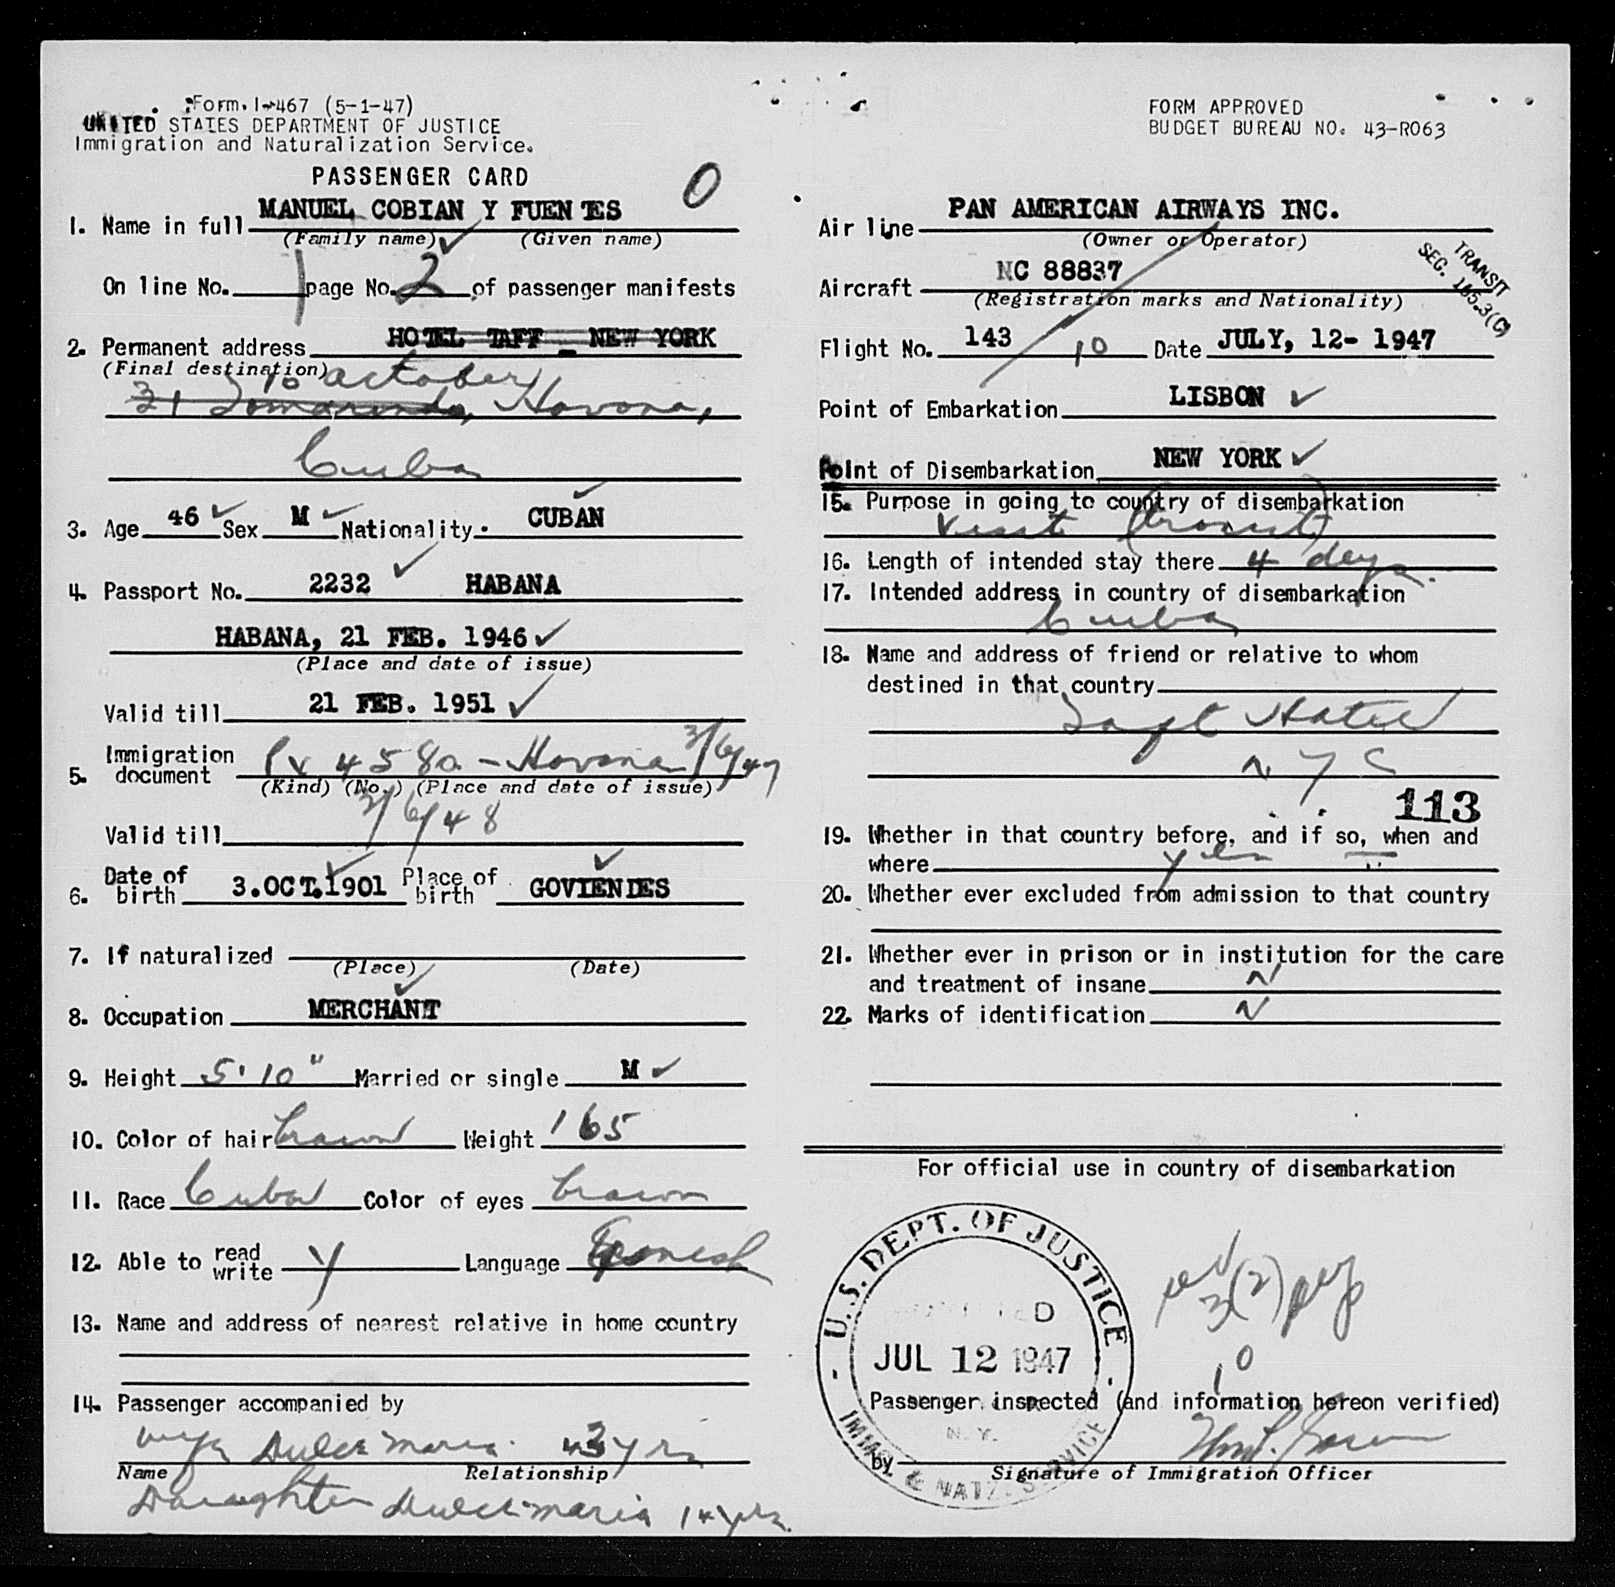 Form. I-467 (5-1-47)
UNITED STATES DEPARTMENT OF JUSTICE
Immigration and Naturalization Service.
PASSENGER CARD
0
1. Name in full MANUEL COBIAN Y FUENTES
(Family name) (Given name)
On line No. 1 page No. 2 of passenger manifests
2. Permanent address HOTEL TAFF - NEW YORK
(Final destination) 10 October
31 Tomarindo, Havana,
Cuba
3. Age 46 Sex M Nationality. CUBAN
4. Passport No. 2232 HABANA
HABANA, 21 FEB. 1946
(Place and date of issue)
Valid till 21 FEB. 1951
5. Immigration document Pv 4580 - Havana 3/6/47
(Kind) (No.) (Place and date of issue)
Valid till 3/6/48
6. Date of birth 3.OCT.1901 Place of birth GOVIENDES
7. If naturalized
(Place) (Date)
8. Occupation MERCHANT
9. Height 5' 10" Married or single M
10. Color of hair brown Weight 165
11. Race Cuban Color of eyes brown
12. Able to read write Y Language Spanish
13. Name and address of nearest relative in home country
14. Passenger accompanied by
wife Dulce Maria yrs
Name Relationship
Daughter Dulce Maria 14 yrs.
FORM APPROVED
BUDGET BUREAU NO. 43-R063
Air line PAN AMERICAN AIRWAYS INC.
(Owner or Operator)
TRANSIT
SEC. 165.3(C)
Aircraft NC 88837
(Registration marks and Nationality)
Flight No. 143 10 Date JULY, 12- 1947
Point of Embarkation LISBON
Point of Disembarkation NEW YORK
15. Purpose in going to country of disembarkation
visit (transit)
16. Length of intended stay there 4 days.
17. Intended address in country of disembarkation
Cuba
18. Name and address of friend or relative to whom
destined in that country
Taft Hotel
N Y C
113
19. Whether in that country before, and if so, when and
where yes
20. Whether ever excluded from admission to that country
21. Whether ever in prison or in institution for the care
and treatment of insane N
22. Marks of identification N
For official use in country of disembarkation
U.S. DEPT. OF JUSTICE
JUL 12 1947
N.Y.
IMMIG. & NATZ. SERVICE
3(2)
10
Passenger inspected (and information hereon verified)
by
Signature of Immigration Officer